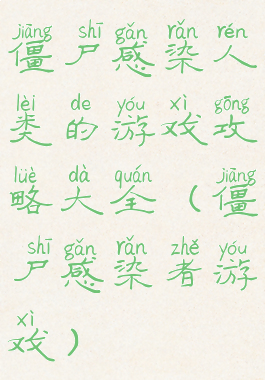 jiāng shī gǎn rǎn rén
僵尸感染人
lèi de yóu xì gōng
类的游戏攻
lüè dà quán jiāng
略大全（僵
shī gǎn rǎn zhě yóu
尸感染者游
xì
戏）